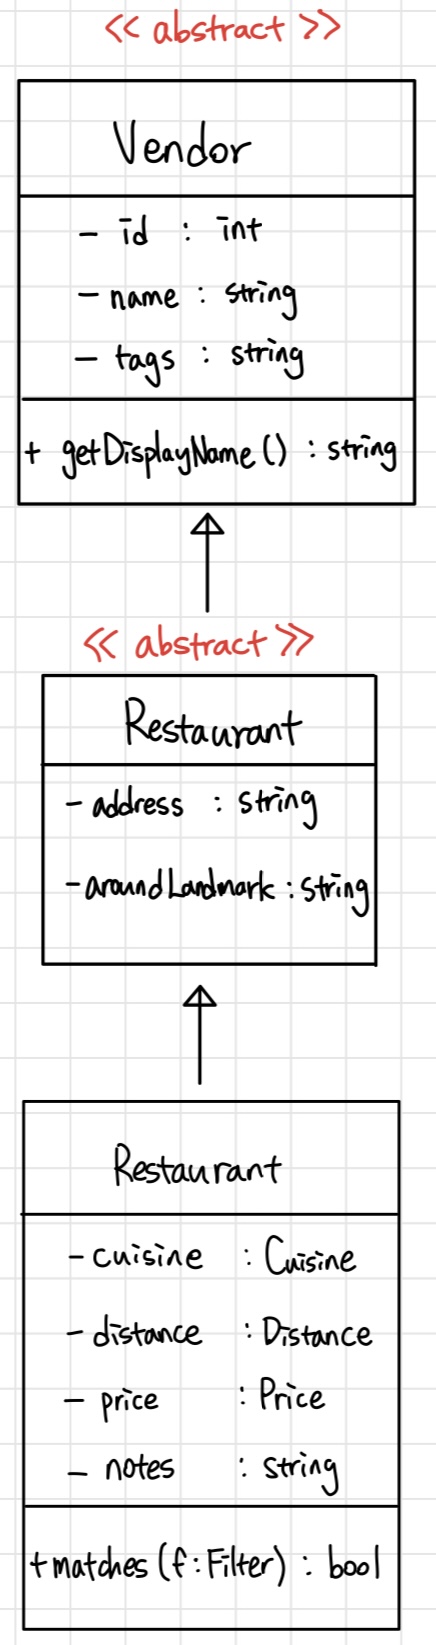 << abstract >>
Vendor
- id : int
- name : string
- tags : string
+ getDisplayName() : string
<< abstract >>
Restaurant
- address : string
- aroundLandmark : string
Restaurant
- cuisine : Cuisine
- distance : Distance
- price : Price
- notes : string
+ matches (f : Filter) : bool